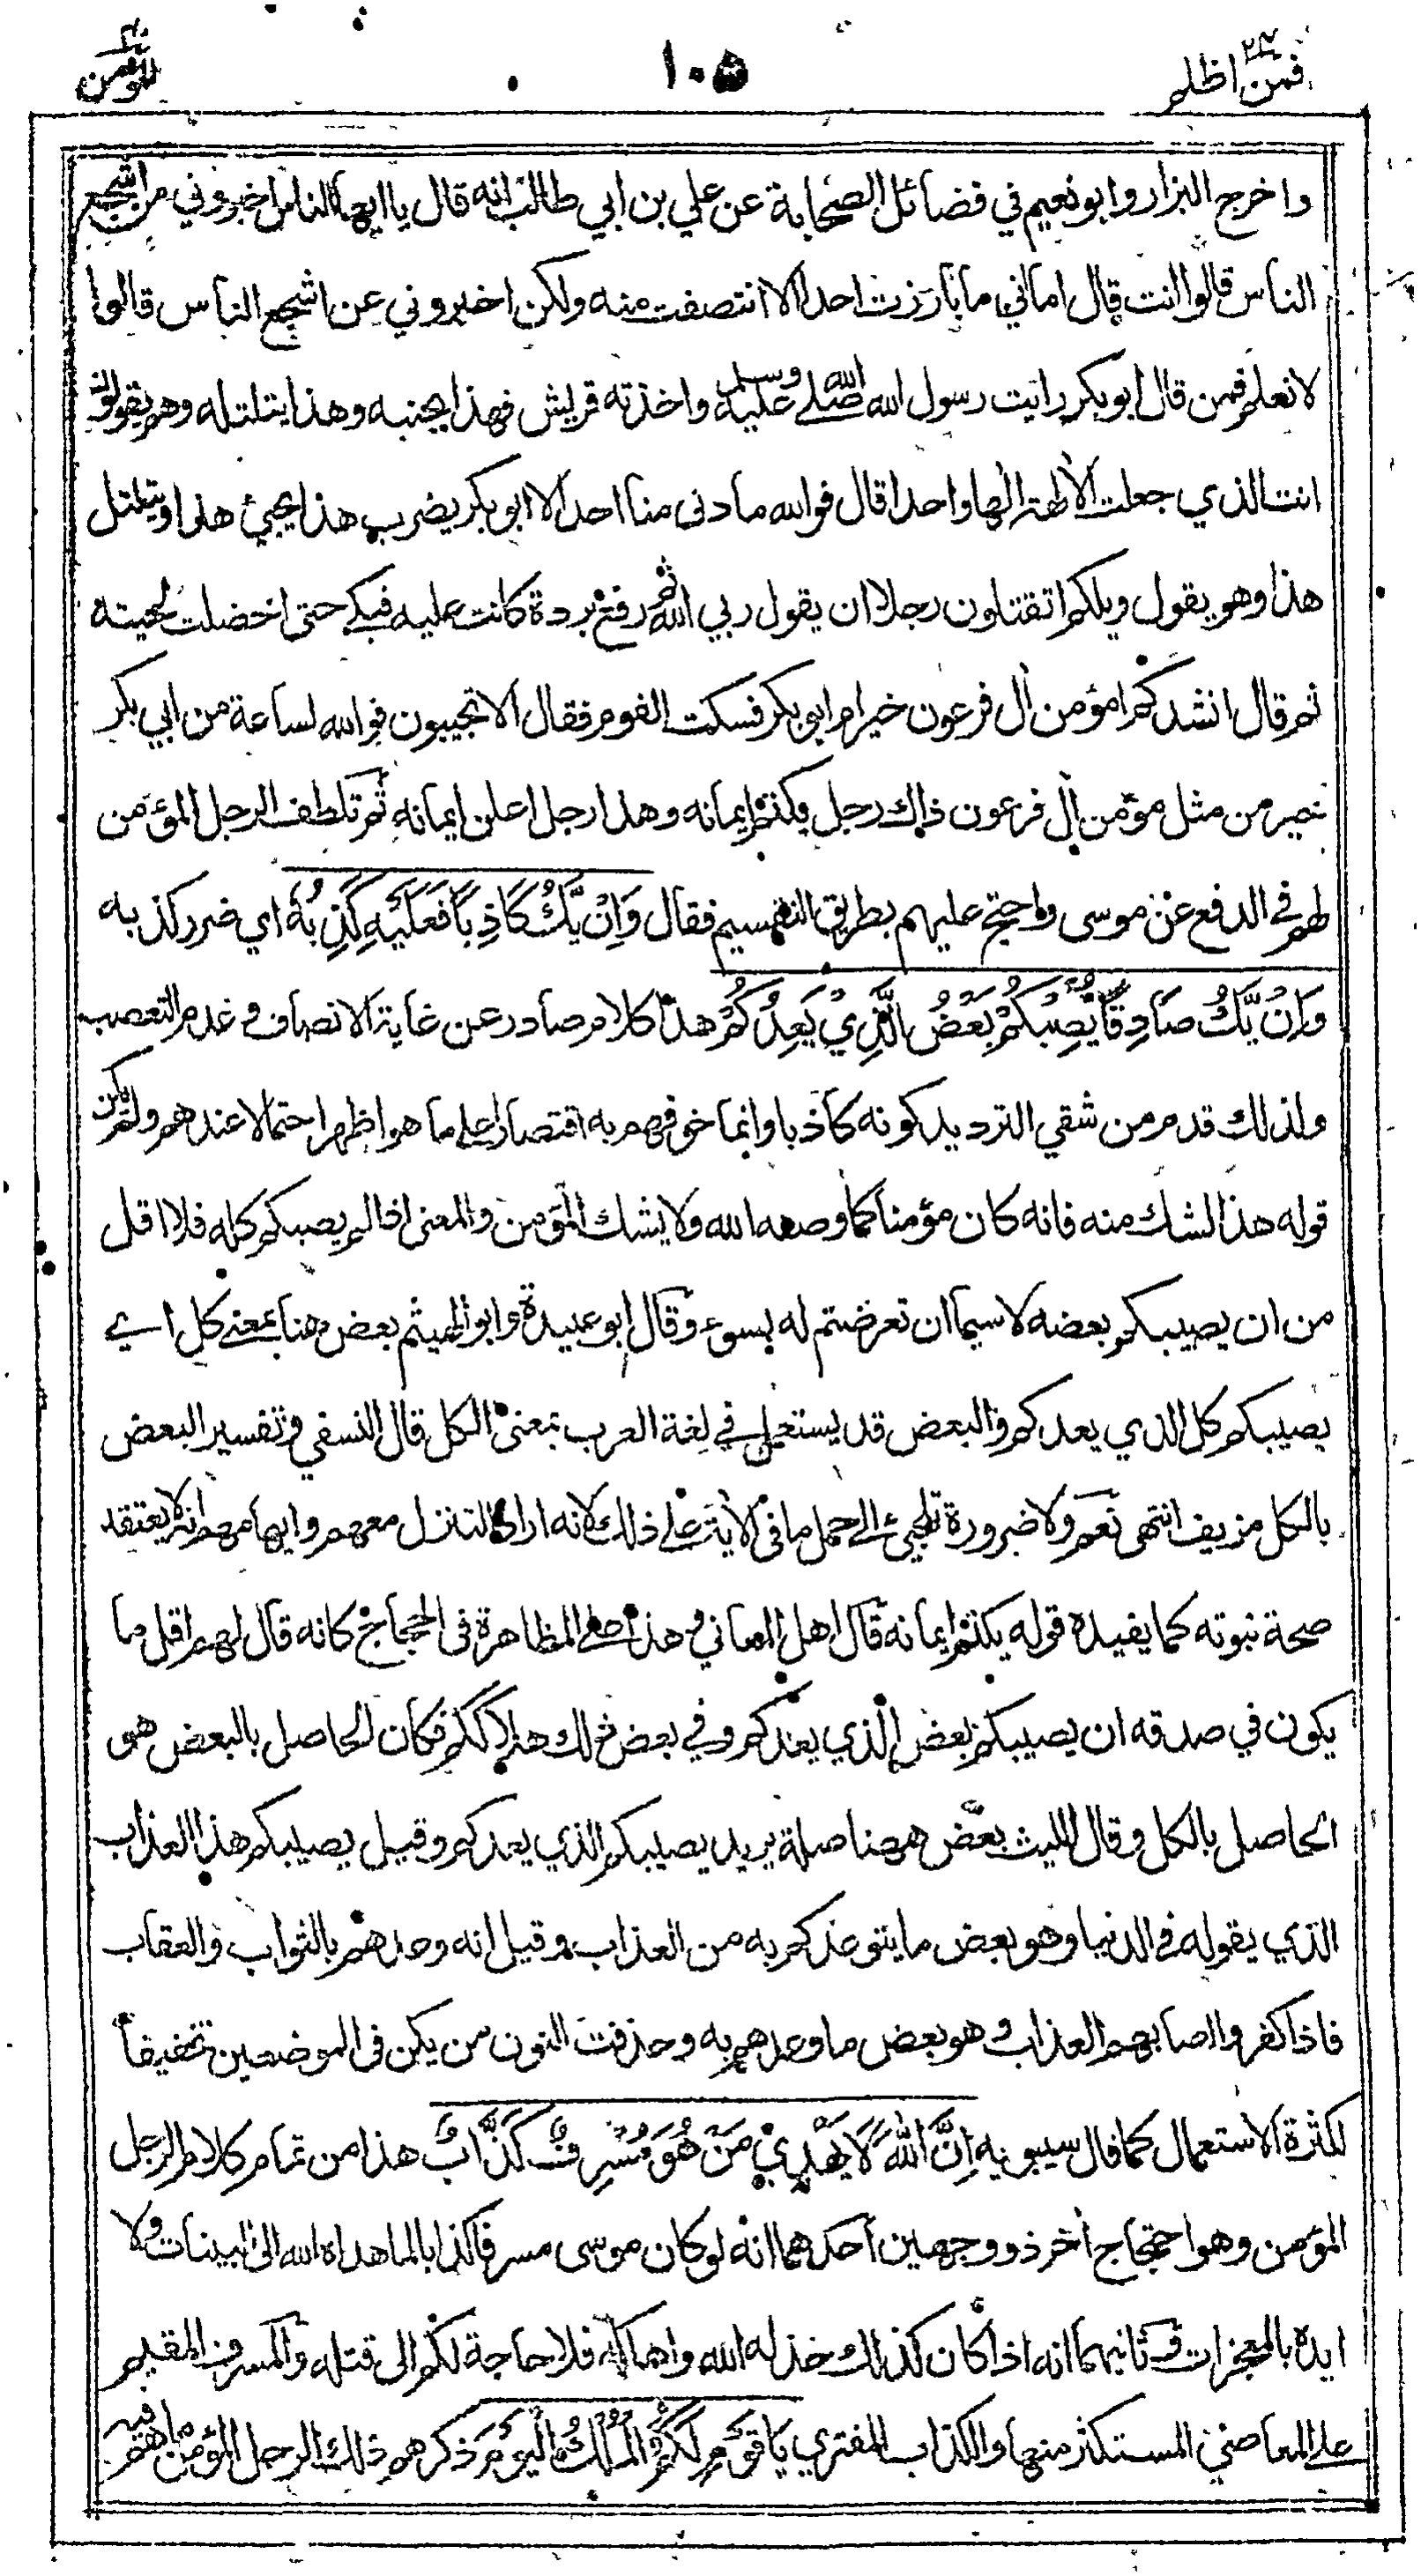 فمن اظلم ٢٤
١٠٥
المؤمن
واخرج البزار وابو نعيم في فضائل الصحابة عن علي بن ابي طالب انه قال يا ايها الناس اخبروني من اشجع
الناس قالوا انت قال اما اني ما بارزت احدا الا انتصفت منه ولكن اخبروني عن اشجع الناس قالوا
لا نعلم فمن قال ابو بكر رايت رسول الله صلى الله عليه وسلم واخذته قريش فهذا يجنبه وهذا يتلتله وهم يقولون
انت الذي جعلت الألهة الها واحدا قال فوالله ما دنى منا احد الا ابو بكر يضرب هذا ويجيئ هذا ويتلتل
هذا وهو يقول ويلكم اتقتلون رجلا ان يقول ربي الله ثم رفع بردة كانت عليه فبكى حتى اخضلت لحيته
ثم قال انشدكم امؤمن أل فرعون خير ام ابو بكر فسكت القوم فقال الا تجيبون فوالله لساعة من ابي بكر
خير من مثل مؤمن أل فرعون ذاك رجل يكتم ايمانه وهذا رجل اعلن ايمانه ثم تلطف الرجل المؤمن
لهم في الدفع عن موسى واحتج عليهم بطريق التقسيم فقال وَاِنْ يَّكُ كَاذِبًا فَعَلَيْهِ كَذِبُهٗ اي ضرر كذبه
وَاِنْ يَّكُ صَادِقًا يُّصِبْكُمْ بَعْضُ الَّذِيْ يَعِدُكُمْ هذا كلام صادر عن غاية الانصاف وعدم التعصب
ولذلك قدم من شقي الترديد كونه كاذبا وانما خوفهم به اقتصارا على ما هو اظهر احتمالا عندهم ولم يكن
قوله هذا لشك منه فانه كان مؤمنا كما وصفه الله ولا يشك المؤمن والمعنى اذا لم يصبكم كله فلا اقل
من ان يصيبكم بعضه لا سيما ان تعرضتم له بسوء وقال ابو عبيدة وابو الهيثم بعض هنا بمعنى كل اي
يصيبكم كل الذي يعدكم والبعض قد يستعمل في لغة العرب بمعنى الكل قال النسفي وتفسير البعض
بالكل مزيف انتهى نعم ولا ضرورة تلجيئ الى حمل ما في الأية على ذلك لانه اراد التنزل معهم وايهامهم انه لا يعتقد
صحة نبوته كما يفيده قوله يكتم ايمانه قال اهل المعاني وهذا على المظاهرة في الحجاج كانه قال لهم اقل ما
يكون في صدقه ان يصيبكم بعض الذي يعدكم وفي بعض ذلك هلاككم فكان الحاصل بالبعض هو
الحاصل بالكل وقال الليث بعض ههنا صلة يريد يصيبكم الذي يعدكم وقيل يصيبكم هذا العذاب
الذي يقوله في الدنيا وهو بعض ما يتوعدكم به من العذاب وقيل انه وعدهم بالثواب والعقاب
فاذا كفروا اصابهم العذاب وهو بعض ما وعدهم به وحذفت النون من يكن في الموضعين تخفيفا
لكثرة الاستعمال كما قال سيبويه اِنَّ اللهَ لَا يَهْدِيْ مَنْ هُوَ مُسْرِفٌ كَذَّابٌ هذا من تمام كلام الرجل
المؤمن وهو احتجاج أخر ذو وجهين احدهما انه لو كان موسى مسرفا كذابا لما هداه الله الى البينات ولا
ايده بالمعجزات وثانيهما انه اذا كان كذلك خذله الله واهلكه فلا حاجة لكم الى قتله والمسرف المقيم
على المعاصي المستكثر منها والكذاب المفتري يَا قَوْمِ لَكُمُ الْمُلْكُ الْيَوْمَ ذكرهم ذلك الرجل المؤمن ما هم فيه